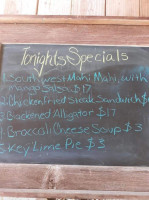 Tonights Specials
1 Southwest Mahi Mahi, with
mango Salsa $17
2 Chicken Fried Steak Sandwich $
3 Blackened Alligator $17
Broccoli Cheese Soup $3
5 Key Lime Pie $3